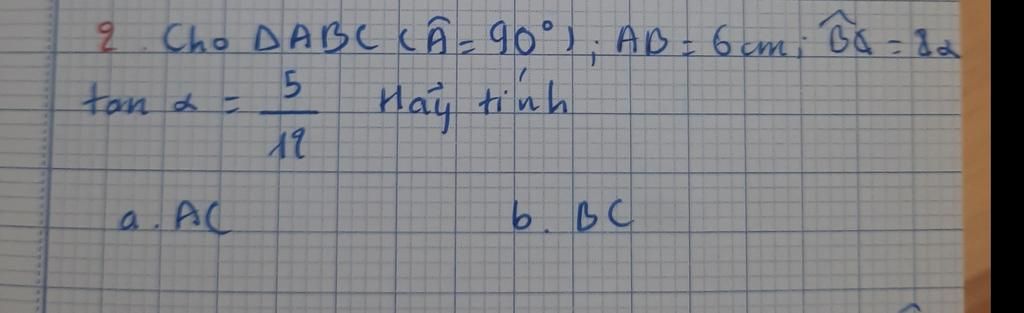 2. Cho ΔABC (Â = 90°); AB = 6cm;
tan α = 5/12 Hãy tính
a. AC b. BC